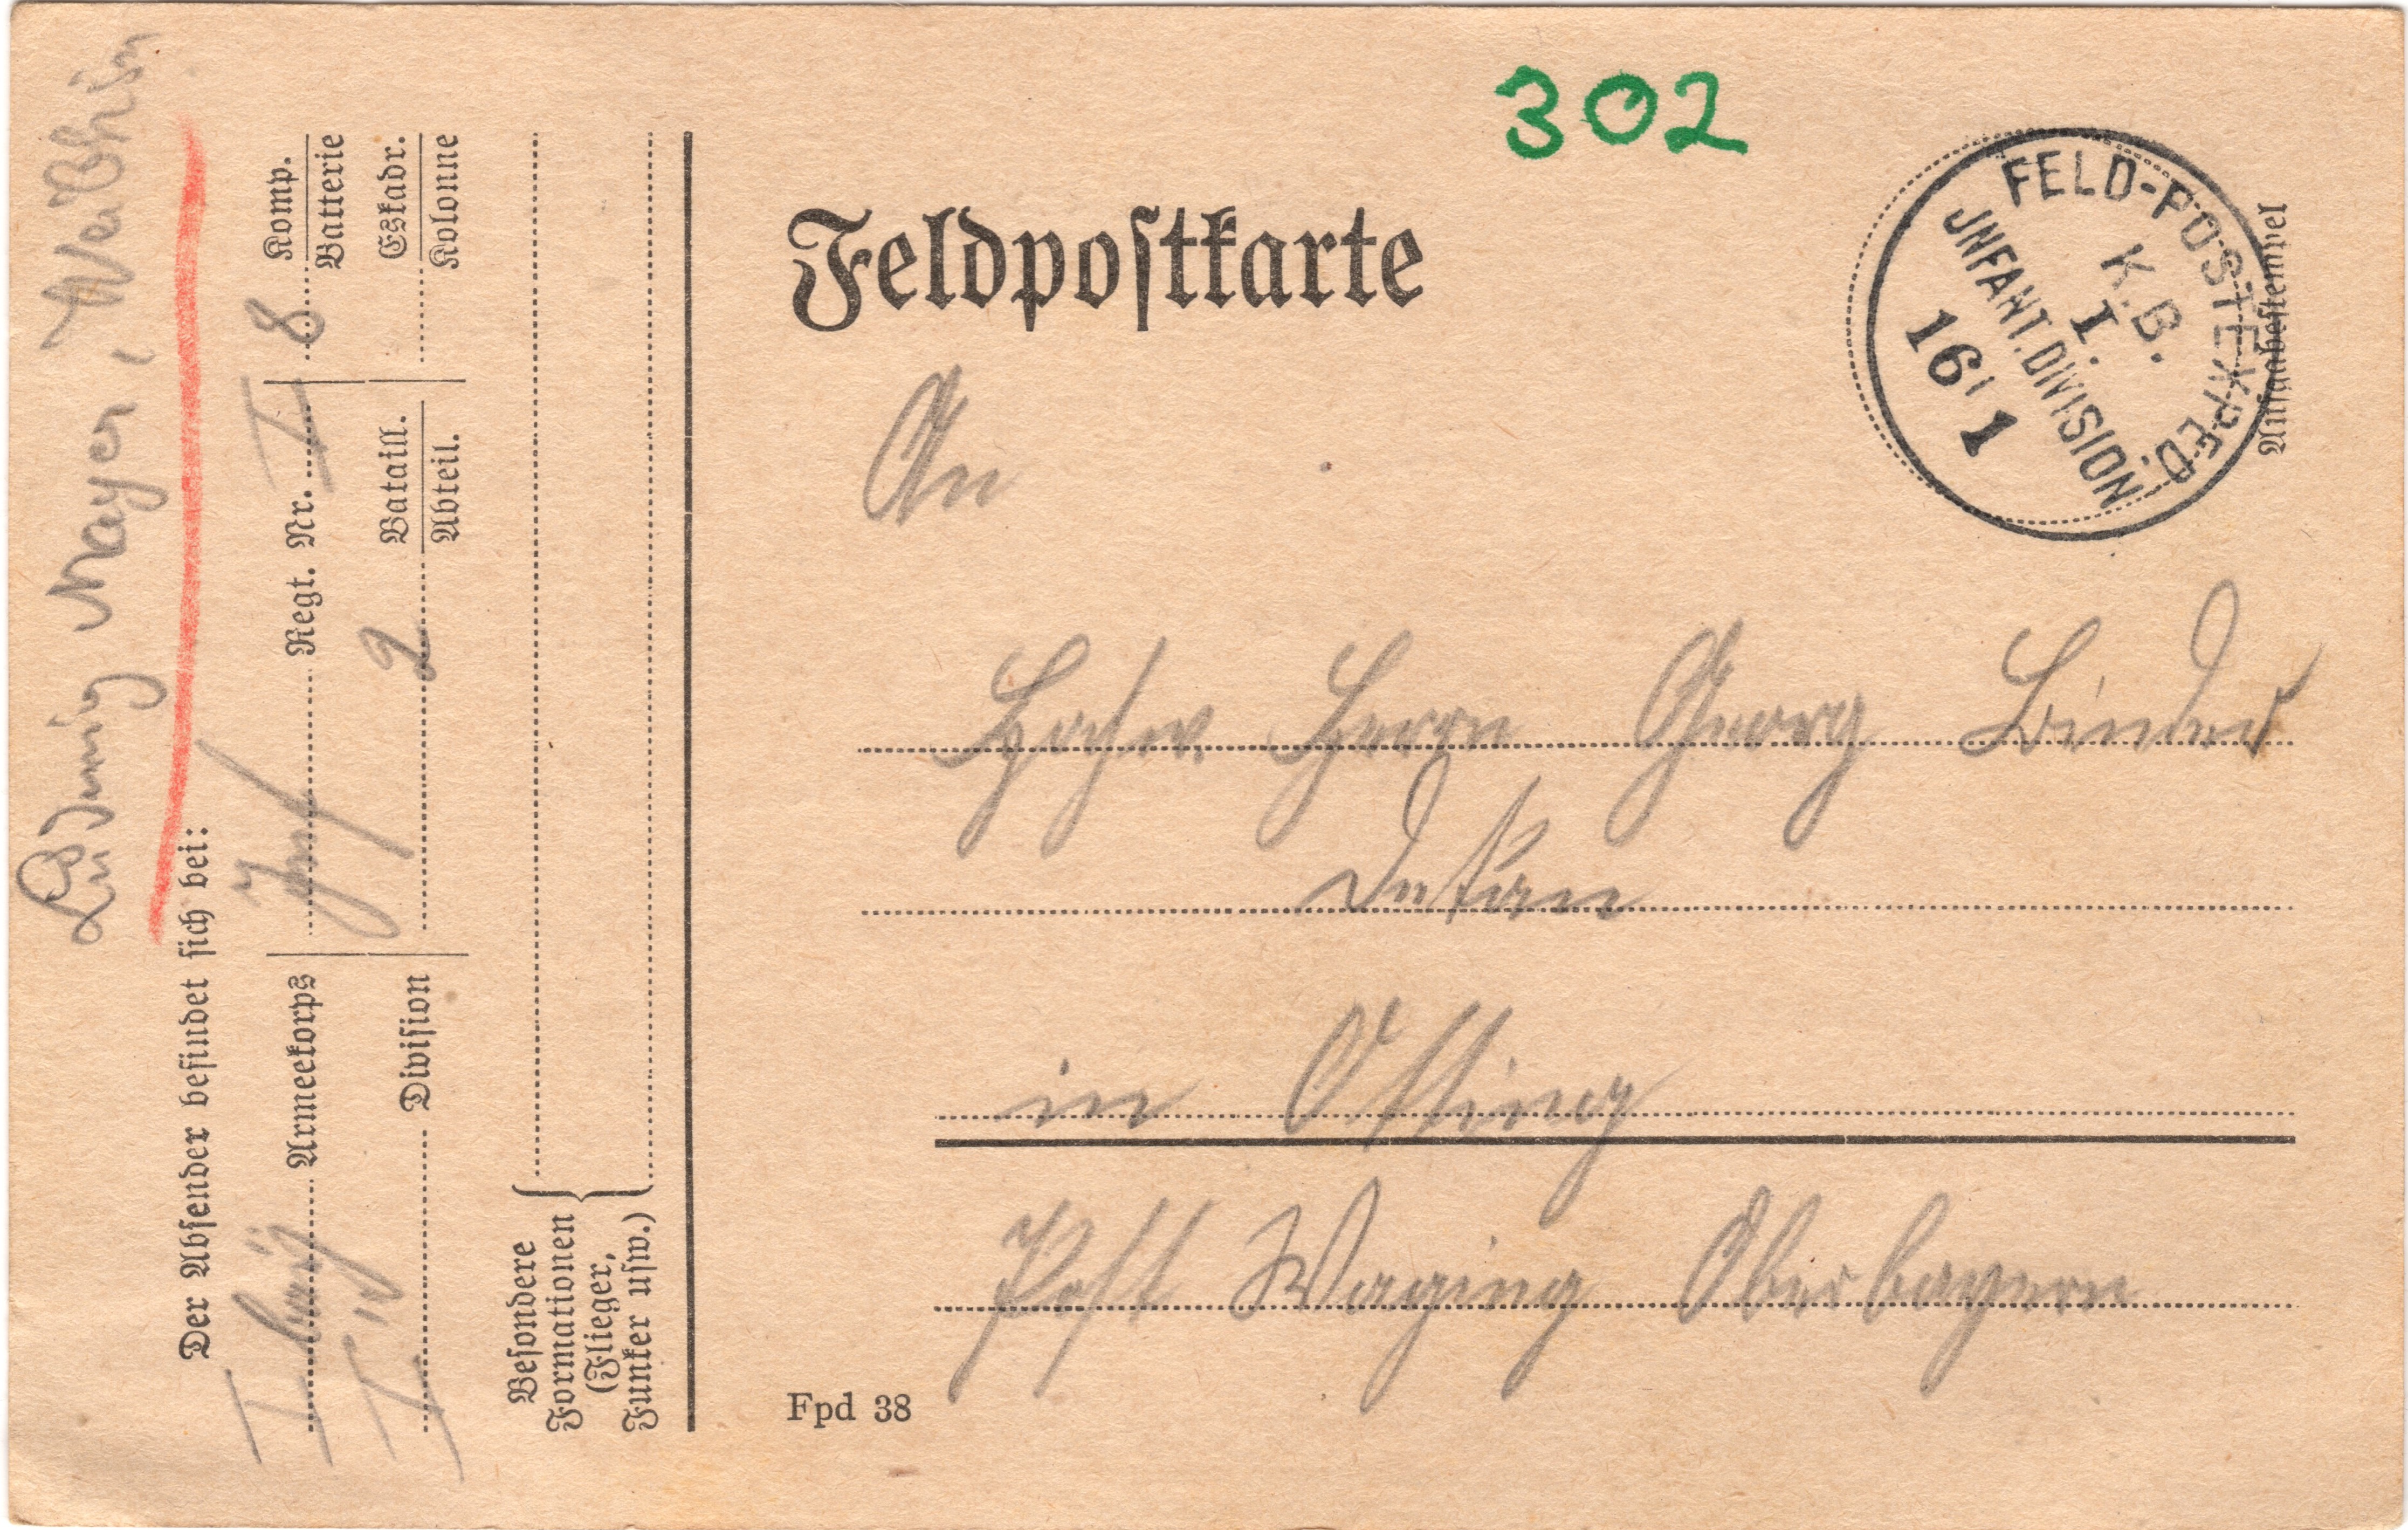 302
Feldpostkarte
Aufgabestempel
FELD-POSTEXPED.
K.B.
I.
JNFANT.DIVISION
16 1
An
Hochw. Herrn Georg Linder
Dekan
in Otting
Post Waging Oberbayern
Fpd 38
Ludwig Mayer,
Der Absender befindet sich bei:
I bay Armeekorps
Inf Regt. Nr. I
8 Komp.
Batterie
I Division
2 Bataill.
Abteil.
Eskadr.
Kolonne
Besondere
Formationen
(Flieger,
Funker usw.)